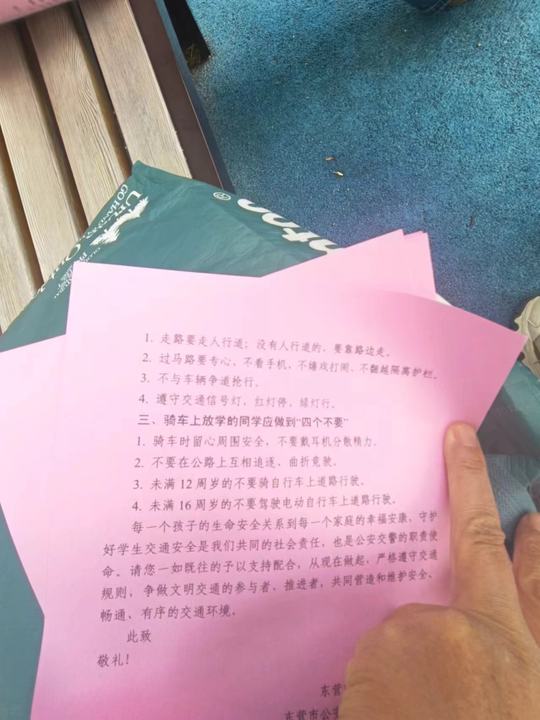 1. 走路要走人行道；没有人行道的，要靠路边走。
2. 过马路要专心，不看手机、不嬉戏打闹、不翻越隔离护栏。
3. 不与车辆争道抢行。
4. 遵守交通信号灯，红灯停，绿灯行。
三、骑车上放学的同学应做到“四个不要”
1. 骑车时留心周围安全，不要戴耳机分散精力。
2. 不要在公路上互相追逐、曲折竞驶。
3. 未满 12 周岁的不要骑自行车上道路行驶。
4. 未满 16 周岁的不要驾驶电动自行车上道路行驶。
每一个孩子的生命安全关系到每一个家庭的幸福安康，守护
好学生交通安全是我们共同的社会责任，也是公安交警的职责使
命。请您一如既往的予以支持配合，从现在做起，严格遵守交通
规则，争做文明交通的参与者、推进者，共同营造和维护安全、
畅通、有序的交通环境。
此致
敬礼！
东营
东营市公安